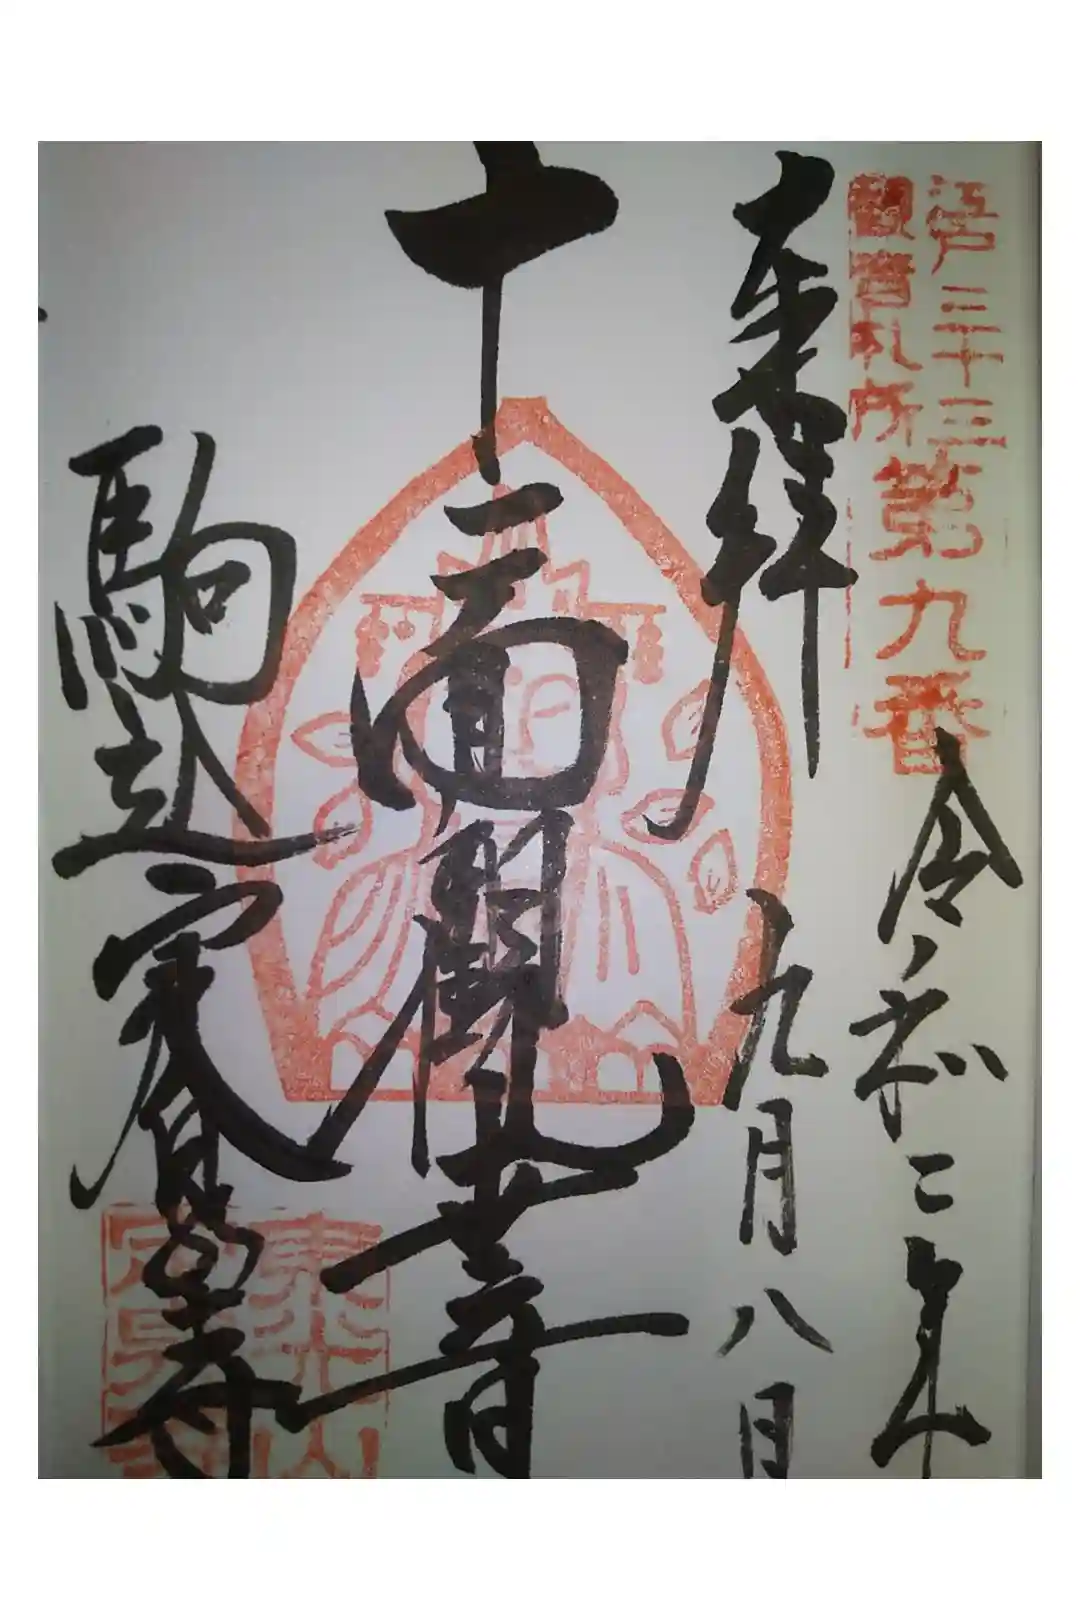 江戸三十三
観音札所
第九番
奉拝
令和二年
九月八日
十一面觀世音
駒込定泉寺
東光山
定泉寺